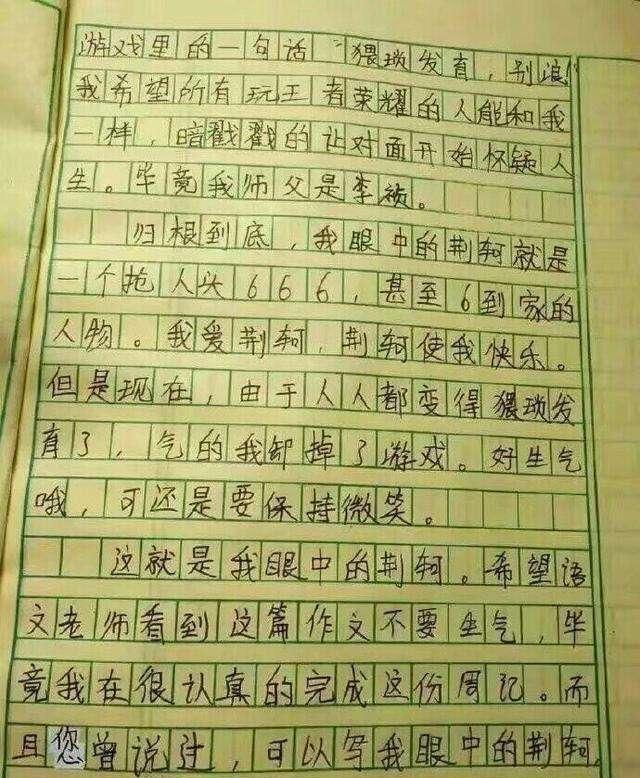 游戏里的一句话“猥琐发育，别浪！”
我希望所有玩王者荣耀的人能和我
一样，暗戳戳的让对面开始怀疑人
生。毕竟我师父是李祯。
归根到底，我眼中的荆轲就是
一个抢人头666，甚至6到家的
人物。我爱荆轲，荆轲使我快乐。
但是现在，由于人人都变得猥琐发
育了，气的我卸掉了游戏。好生气
哦，可还是要保持微笑。
这就是我眼中的荆轲。希望语
文老师看到这篇作文不要生气，毕
竟我在很认真的完成这份周记。而
且您曾说过，可以写我眼中的荆轲，